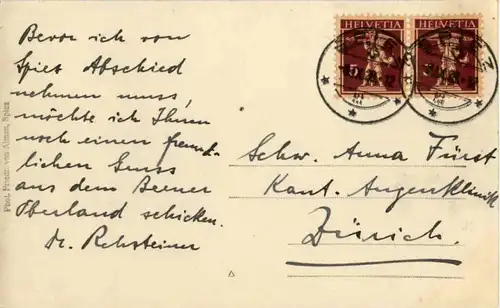 Bevor ich von
Spiez Abschied
nehmen muss,
möchte ich Ihnen
noch einen freund-
lichen Gruss
aus dem Berner
Oberland schicken.
Dr. Rehsteiner
HELVETIA HELVETIA
Schw. Anna Fürst
Kant. Augenklinik
Zürich.